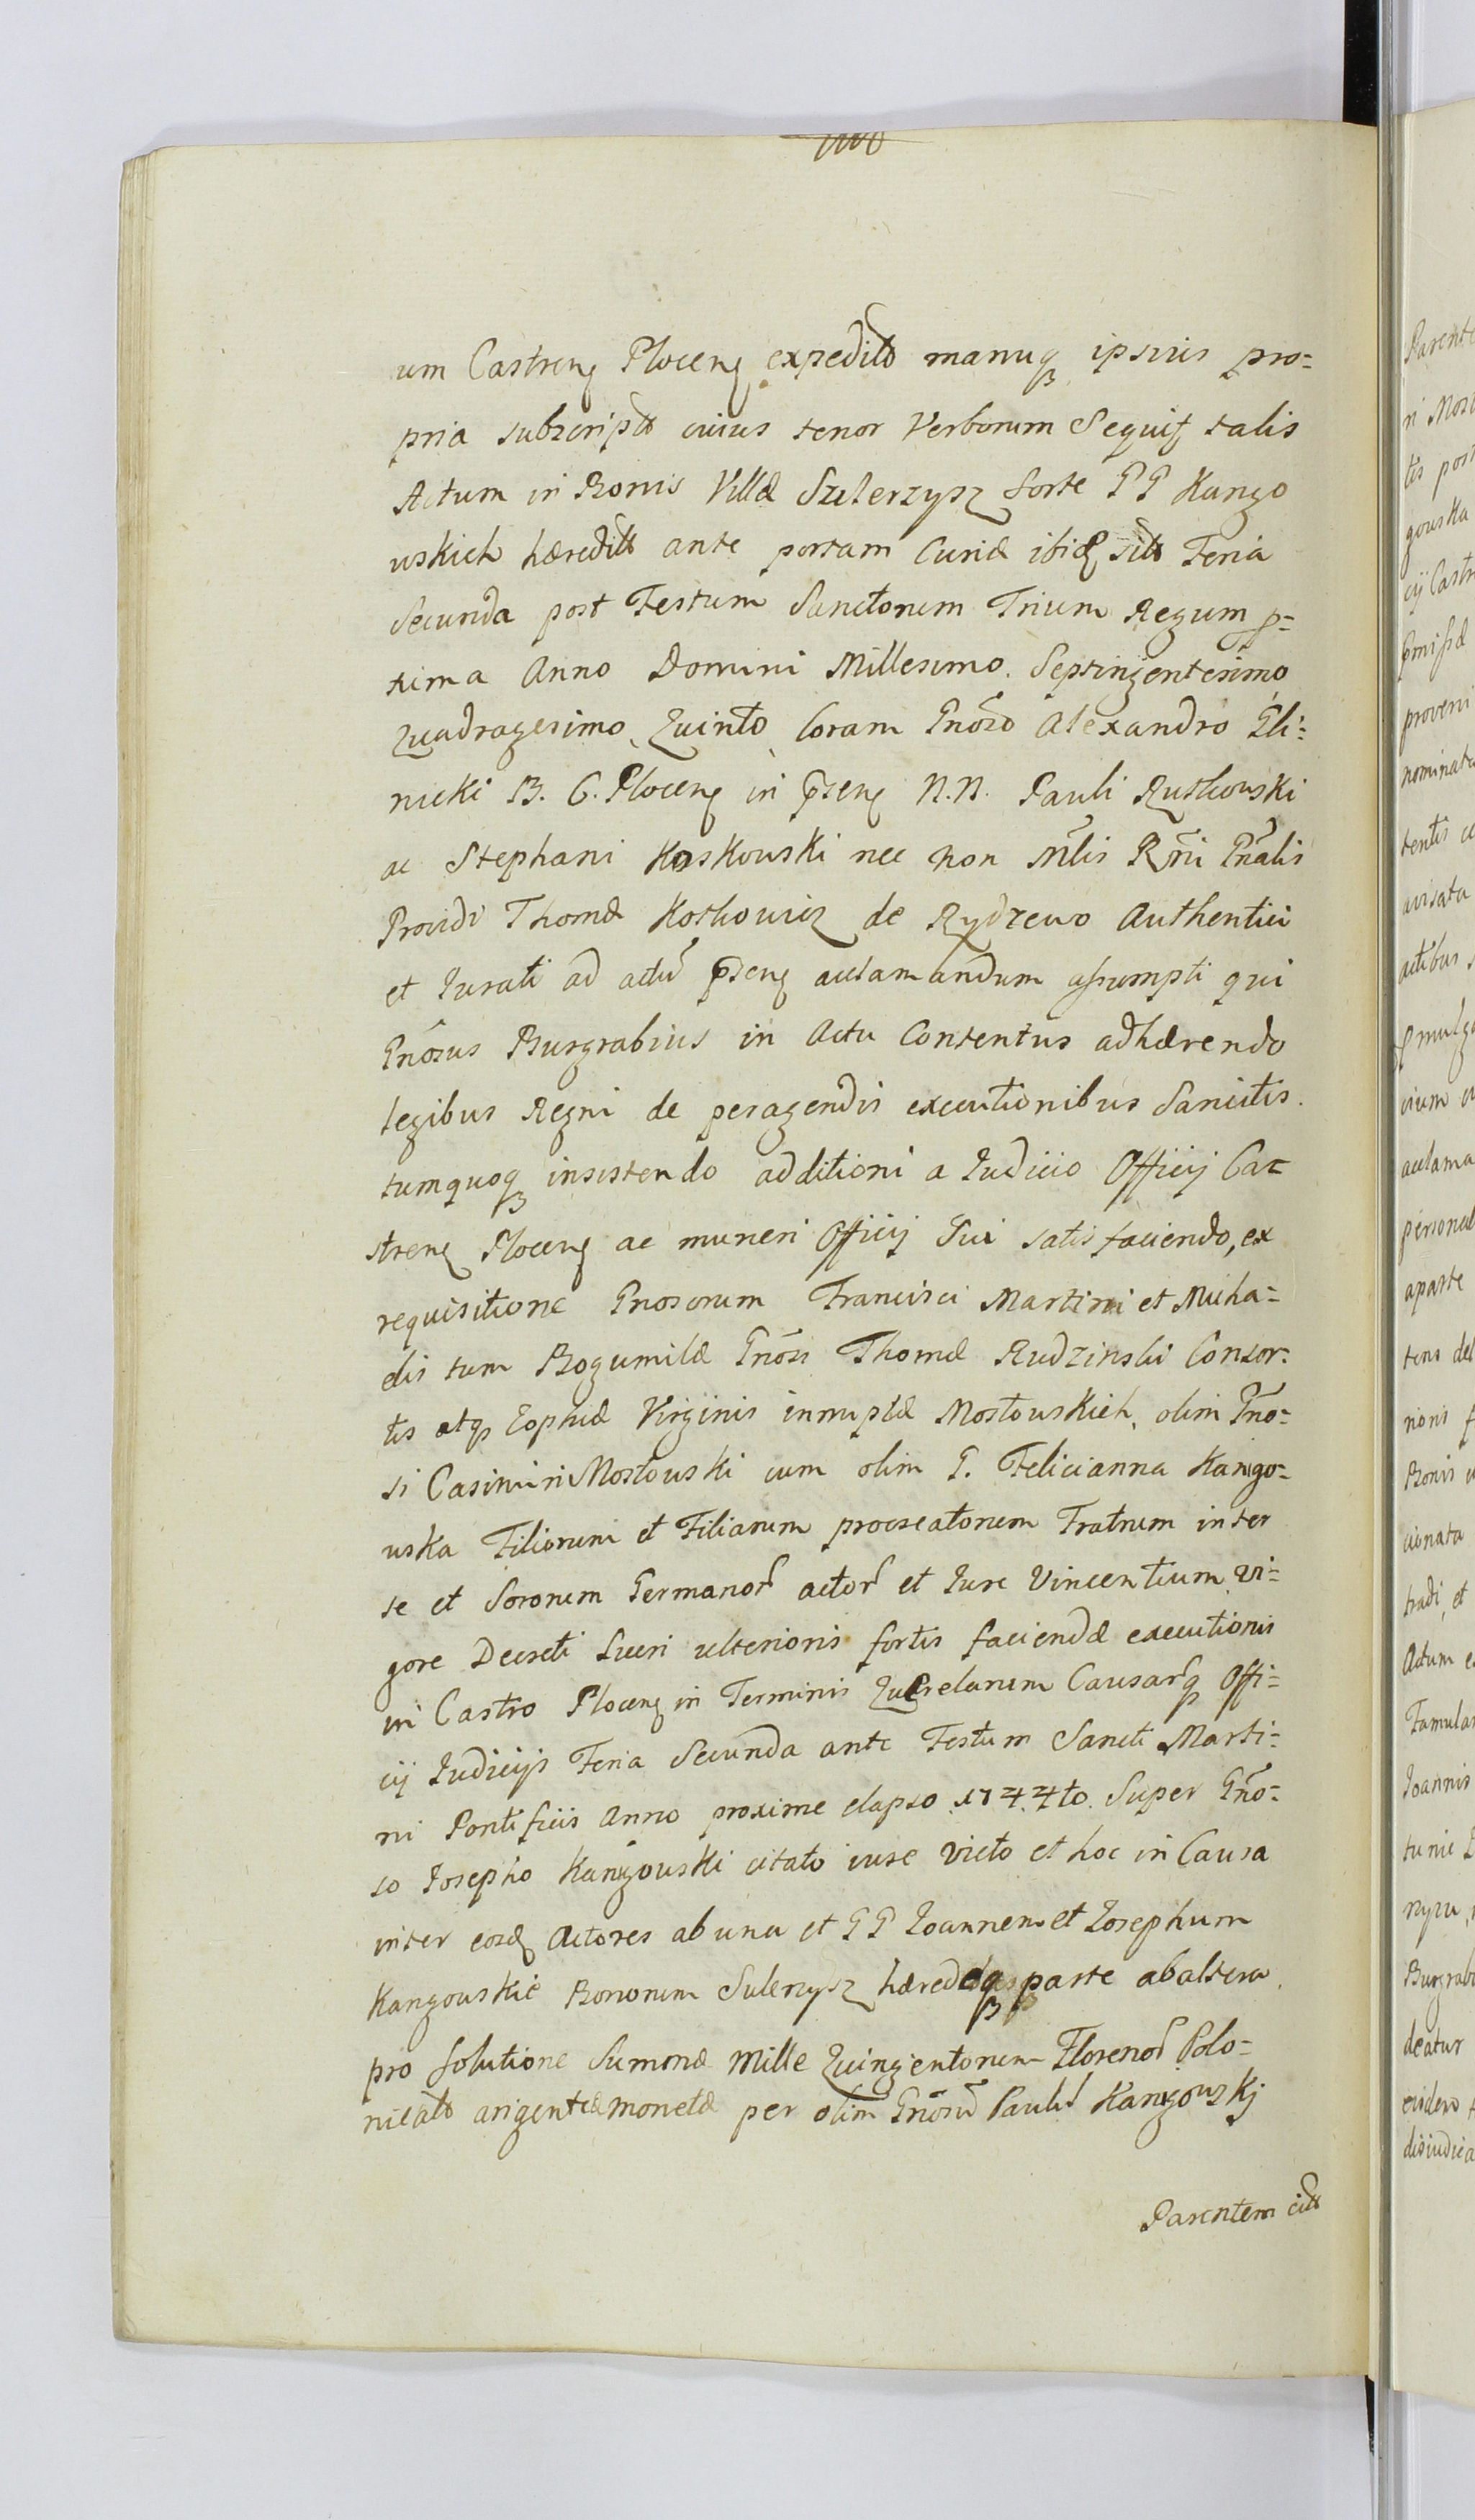 um Castreng Ploceng expedito manuq ipsius pro=
pria subscripto cuius tenor Verborum Sequit talis
Actum in Bonis Villæ Szulerzysz sorte GG Kango
wskich hæredit ante portam Curiæ ibid sit Feria
Secunda post Festum Sanctorum Trium Regum p=
xima Anno Domini Millesimo Septingentesimo
Quadragesimo Quinto Coram Gnoso Alexandro Gli=
nicki B. C. Ploceng in pseng N.N. Pauli Rutkowski
ac Stephani Koskowski nec non Mlis Rni Gnalis
Providi Thomæ Kotkowicz de Rydzewo Authentici
et Jurati ad actu pseng aclamandum assumpti qui
Gnosus Burgrabius in Actu Contentus adhærendo
legibus Regni de peragendis executionibus Sancitis.
tumquoq insistendo additioni a Judicio Officij Cas=
streng Ploceng ac muneri Officij Sui satisfaciendo, ex
requisitione Gnosorum Francisci Martini et Micha=
elis tum Bogumilæ Gnosi Thomæ Rudzinski Consor=
tis atq Zophiæ Virginis innuptæ Mostowskich, olim Gno=
si Casimiri Mostowski cum olim G. Felicianna Kanigo=
wska Filiorum et Filiarum procreatorum Fratrum inter
se et Sororum Germanor actor et Jure Vincentium vi=
gore Decreti Lucri ulterioris fortis faciendæ executionis
in Castro Ploceng in Terminis Querelarum Causarq Offi=
cij Judicijs Feria Secunda ante Festum Sancti Marti=
ni Pontificis Anno proxime elapso 1744to Super Gno=
so Josepho Kanigowski citato iure victo et hoc in Causa
inter eosd Actores ab una et GG Joannem et Josephum
Kangowskie Bonorum Sulerzysz hæredeq parte ab altera
pro Solutione Summæ Mille Quingentorum Florenor Polo=
nical argenteæ monetæ per olim Gnosu Paulu Kanigowskj
Parentem cit